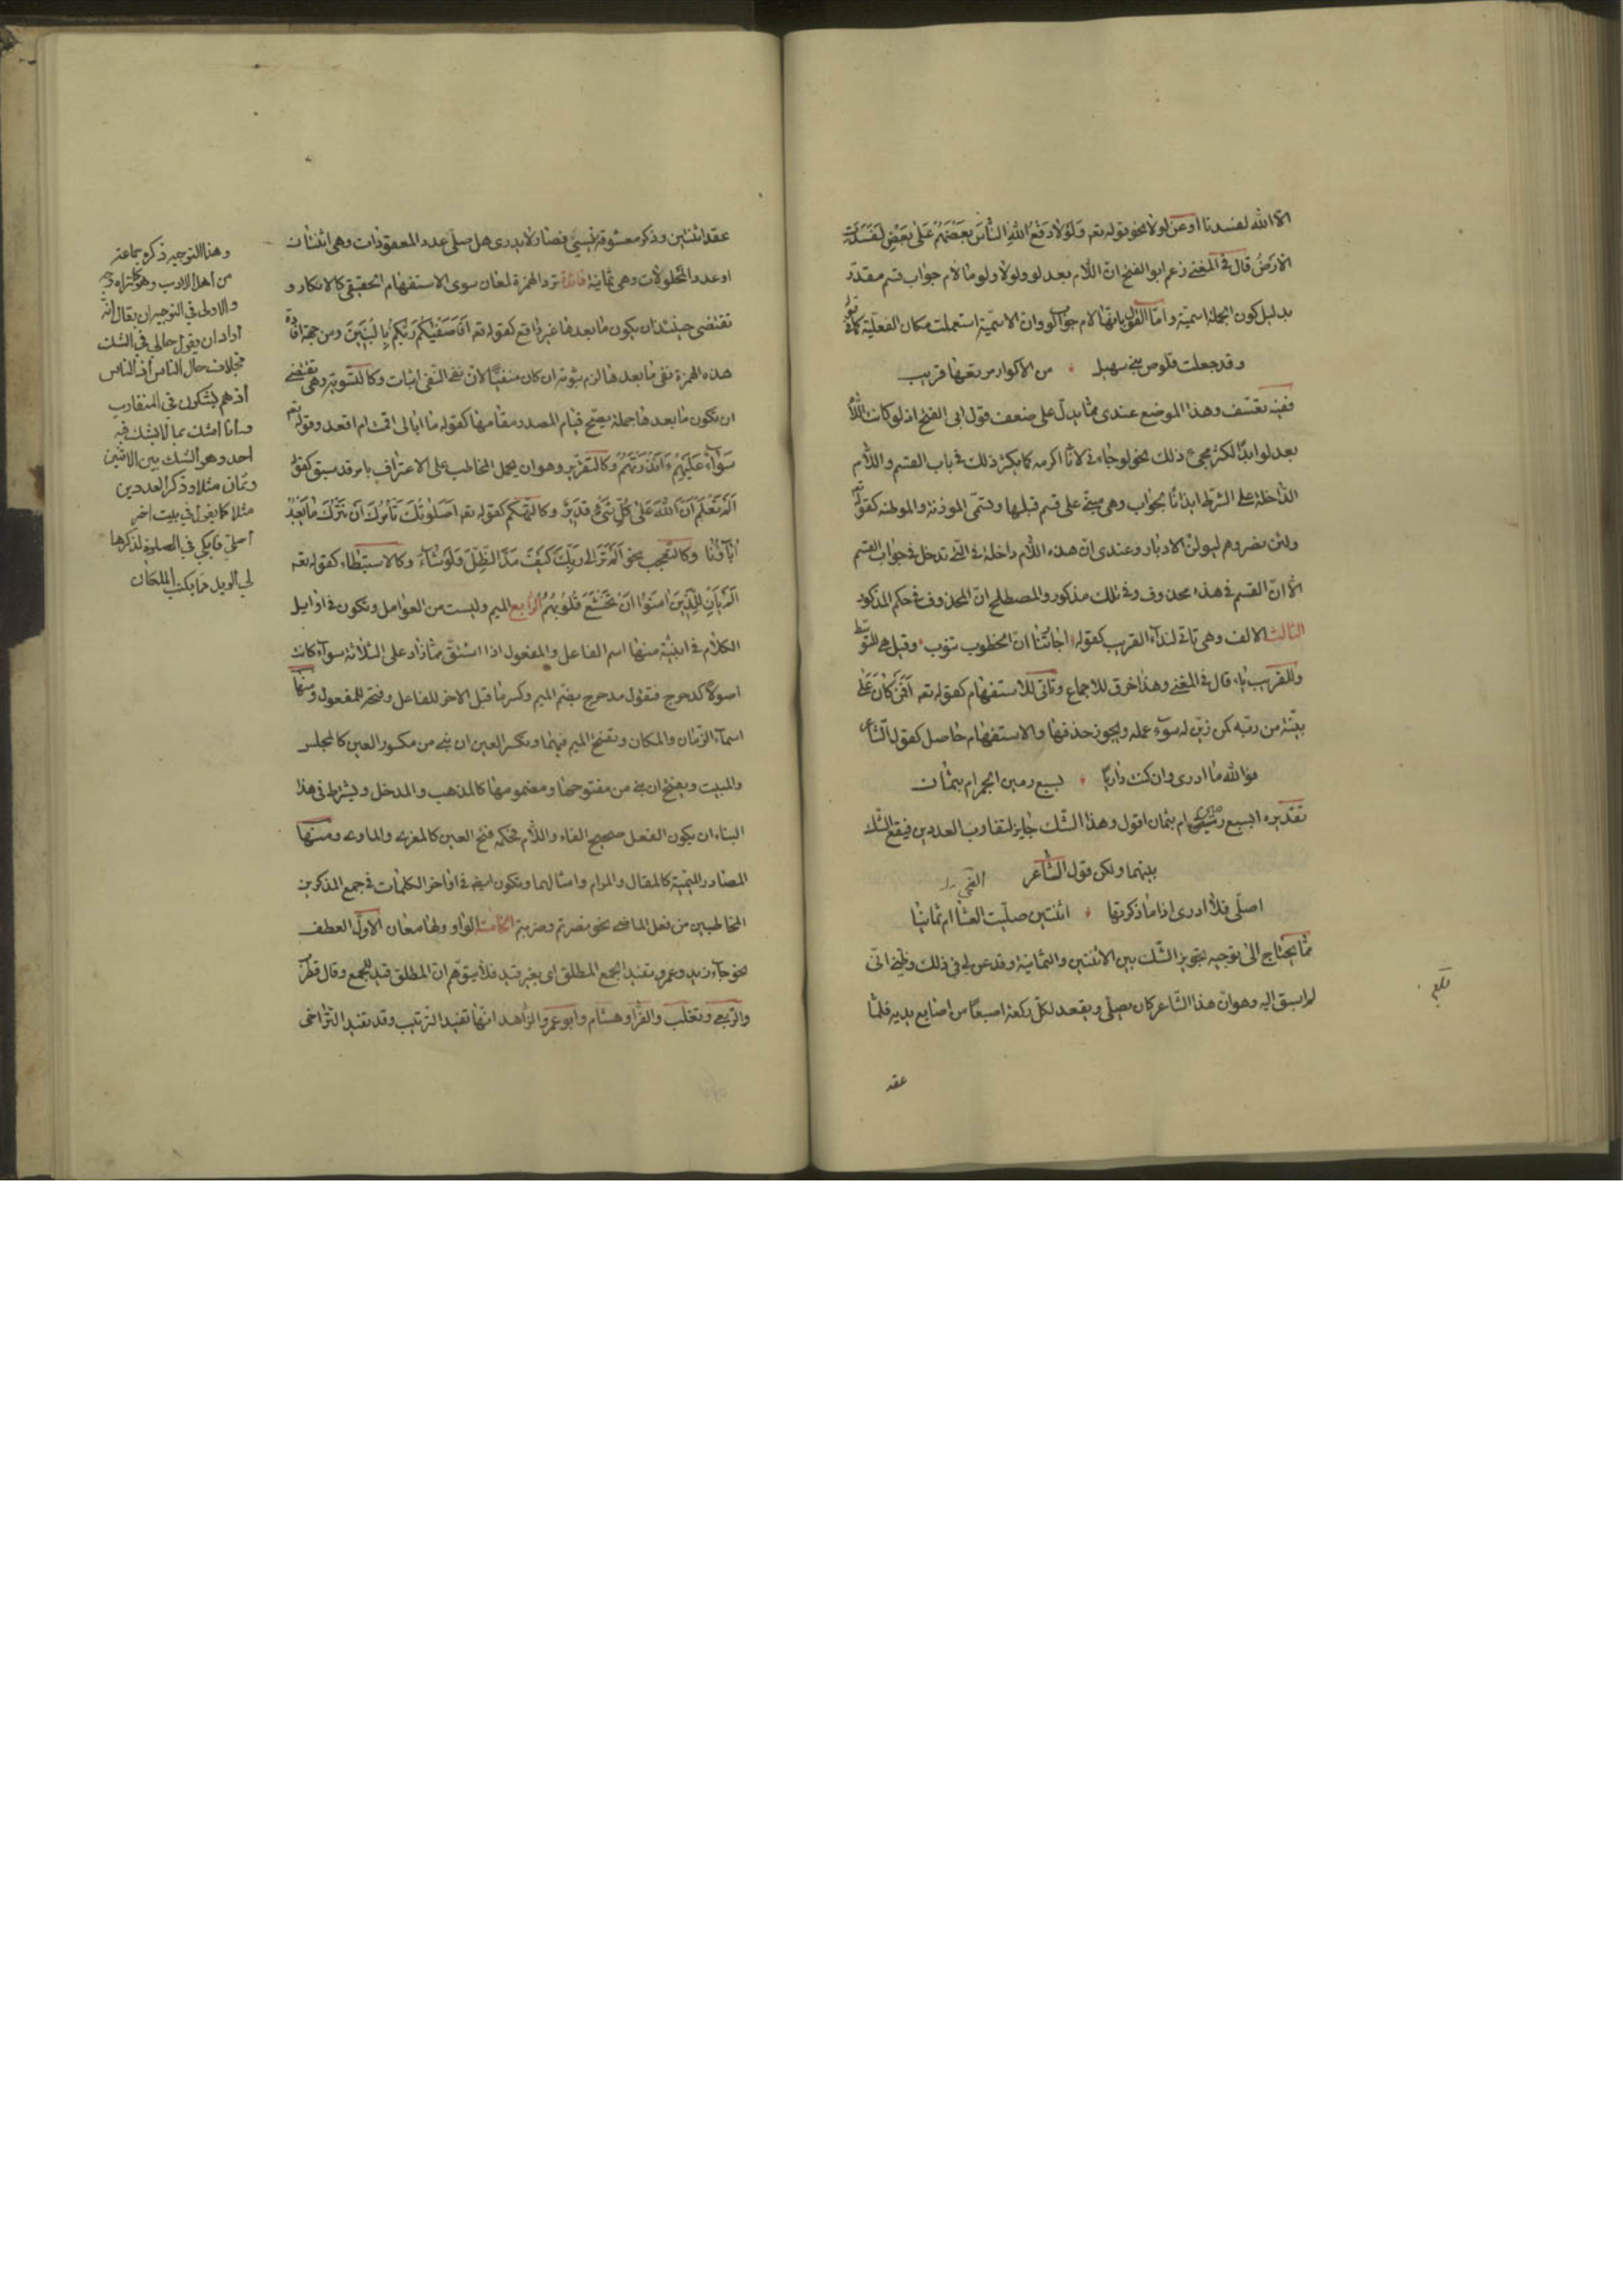 الا الله لفسدتا او عن لولا نحو قوله تعه وَلَوْلا دَفْعُ اللهِ النّاسَ بَعْضَهُمْ عَلىٰ بَعْضٍ لَفَسَدَتِ
الارْضُ قال فى المغنى زعم ابو الفتح ان اللام بعد لو ولولا ولوما لام جواب قسم مقدّر
بدليل كون الجملة اسمية واما القول بانها لام جواب لو وان الاسمية استعملت مكان الفعلية كما فى قوله
وقد جعلت قلوص بنى سهيل من الاكوار مرتعها قريب
ففيه تعسّف وهذا الموضع عندى مما يدلّ على ضعف قول ابى الفتح اذ لو كانت اللام
بعد لو ابدًا لكثر مجئ ذلك نحو لو جاءنى لانا اكرمه كما يكثر ذلك فى باب القسم واللام
الداخلة على الشرط ايذانًا بجواب وهى مبنية على قسم قبلها وتسمّى الموذنة والموطئة كقوله تعه
ولئن نصروهم ليولنّ الادبار وعندى ان هذه اللام داخلة فى التى تدخل فى جواب القسم
الا ان القسم فى هذا محذوف وفى تلك مذكور والمصطلح ان المحذوف فى حكم المذكور
الثالث الالف وهى تاتى لنداء القريب كقوله اجارتنا ان الخطوب تنوب وقيل هى للمتوسّط
وللقريب يا، قال فى المغنى وهذا خرق للاجماع وتاتى للاستفهام كقوله تعه اَفَمَنْ كانَ عَلىٰ
بيّنة من ربّه كمن زيّن له سوء عمله ويجوز حذفها والاستفهام حاصل كقول الشاعر
فوالله ما ادرى وان كنت داريًا بسبع رمين الجمر ام بثمان
تقديره ابسبع رمين ام بثمان اقول وهذا الشّك جايز لتقارب العددين فيقع الشك
بينهما ولكن قول الشاعر
اصلّى فلا ادرى اذا ما ذكرتها اثنتين صلّيت العشا ام ثمانيا
مما يحتاج الى توجيه تجويز الشّك بين الاثنتين والثمانية وقد عنّ لى فى ذلك وظنى انّى
لم اسبق اليه وهو ان هذا الشاعر كان يصلّى ويعقد لكل ركعة اصبعًا من اصابع يديه فلمّا
عقد
عقد اثنتين وذكر معشوقه نسى فصار لا يدرى هل صلّى عدد المعقودات وهى اثنتان
او عدد المحلولات وهى ثمانية فائدة ترد الهمزة لمعان سوى الاستفهام الحقيقى كالانكار و
تقتضى حينئذ ان يكون ما بعدها غير واقع كقوله تعه اَفَاَصْفٰيكُمْ رَبُّكُمْ بِالْبَنينَ ومن جهة افادة
هذه الهمزة نفى ما بعدها لزم ثبوته ان كان منفيًّا لان نفى النفى اثبات وكالتسوية وهى تقتضى
ان يكون ما بعدها جملة يصحّ قيام المصدر مقامها كقوله ما ابالى اقمت ام اقعد وقوله تعه
سَوآءٌ عَلَيْهِمْ ءَاَنْذَرْتَهُمْ وكالتقرير وهو ان يحمل المخاطب على الاعتراف بامر قد سبق كقوله
اَلَمْ تَعْلَمْ اَنَّ اللهَ عَلىٰ كُلِّ شَىْءٍ قَديرٌ وكالتهكم كقوله تعه اَصَلوتُكَ تَأْمُرُكَ اَنْ نَتْرُكَ ما يَعْبُدُ
آباؤُنا وكالتعجب نحو اَلَمْ تَرَ اِلىٰ رَبِّكَ كَيْفَ مَدَّ الظِّلَّ وَلَوْ شآءَ وكالاستبطاء كقوله تعه
اَلَمْ يَأْنِ لِلَّذينَ امَنُوا اَنْ تَخْشَعَ قُلُوبُهُمْ الرابع الميم وليست من العوامل وتكون فى اوايل
الكلام فى ابنية منها اسم الفاعل والمفعول اذا اشتق مما زاد على الثلاثة سوآء كانت
اصولا كدحرج فتقول مدحرج بضم الميم وكسر ما قبل الاخر للفاعل وفتحه للمفعول ومنها
اسمآء الزمان والمكان وتفتح الميم فيهما وتكسر العين ان بنى من مكسور العين كالمجلس
والمبيت ويفتح ان بنى من مفتوحها ومضمومها كالمذهب والمدخل ويشترط فى هذا
البناء ان يكون الفعل صحيح الفاء واللام فحكمه فتح العين كالمغزى والماوى ومنها
المصادر الميمية كالمقال والمرام وامثالهما وتكون ايضا فى اواخر الكلمات فى جمع المذكرين
المخاطبين من فعل الماضى نحو نصرتم وضربتم الخامس الواو ولها معان الاول العطف
نحو جآء زيد وعمرو وتفيد الجمع المطلق اى بغير قيد فلا يتوهم ان المطلق قيد للجمع وقال قطرب
والربعى وثعلب والفرا وهشام وابو عمرو الزاهد انها تفيد الترتيب وقد تفيد التراخى
وهذا التوجيه ذكره جماعة
من اهل الادب وهو كما تراه
والاولى فى التوجيه ان يقال انه
اراد ان يقول حالى فى الشك
بخلاف حال الناس اذ الناس
اذ هم يشكون فى المتقارب
وانا اشك بما لا يشك فيه
احد وهو الشك بين الاثنين
وثمان مثلا وذكر العددين
مثلا كما يقول فى بيت اخر
اصلى فابكى فى الصلوة لذكرها
لى الويل مما يكتب الملكان